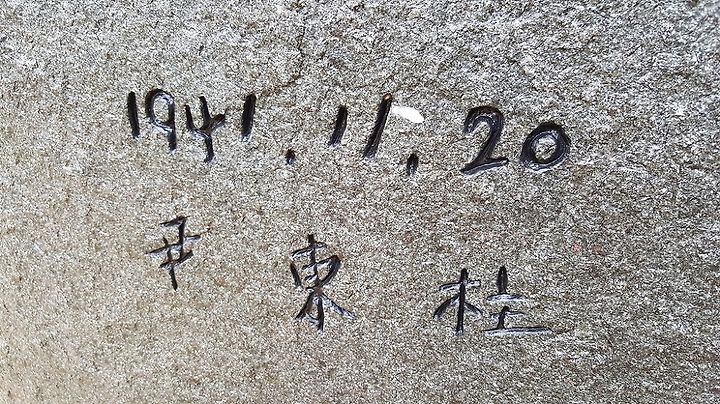 1941.11.20
尹東柱